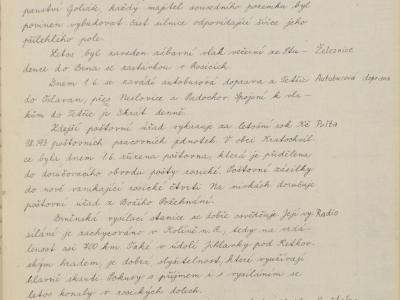 panství Goliáš, každý majitel sousedního pozemku byl
povinen vybudovat část silnice odpovídající šířce jeho
přilehlého pole.
Letos byl zaveden zábavní vlak večerní ze Stu- Železnice
dence do Brna se zastávkou v Rosicích.
Dnem 1.6. se zavádí autobusová doprava z Tetčic Autobusová doprava
do Oslavan, přes Neslovice a Padochov. Spojení k vla-
kům do Tetčic je 5krát denně.
Zdejší poštovní úřad vykazuje za letošní rok Kč Pošta
98.193 poštovních pracovních jednotek. V obci Kratochvil-
ce byla dnem 1.6. zřízena poštovna, která je přidělena
do doručovacího obvodu pošty rosické. Poštovní zásilky
do nově vznikající rosické čtvrti Na nivkách doručuje
poštovní úřad z Božího Požehnání.
Brněnská vysílací stanice se dobře osvědčuje. Její vy- Radio
sílání je zachycováno v Kolíně n. R., tedy na vzdá-
lenost asi 700 km. Také v údolí Jihlavky pod Ketkov-
ským hradem, je dobrá slyšitelnost, které využívají
hlavně skauti. Pokusy s příjmem i s vysíláním se
letos konaly v rosických dolech.